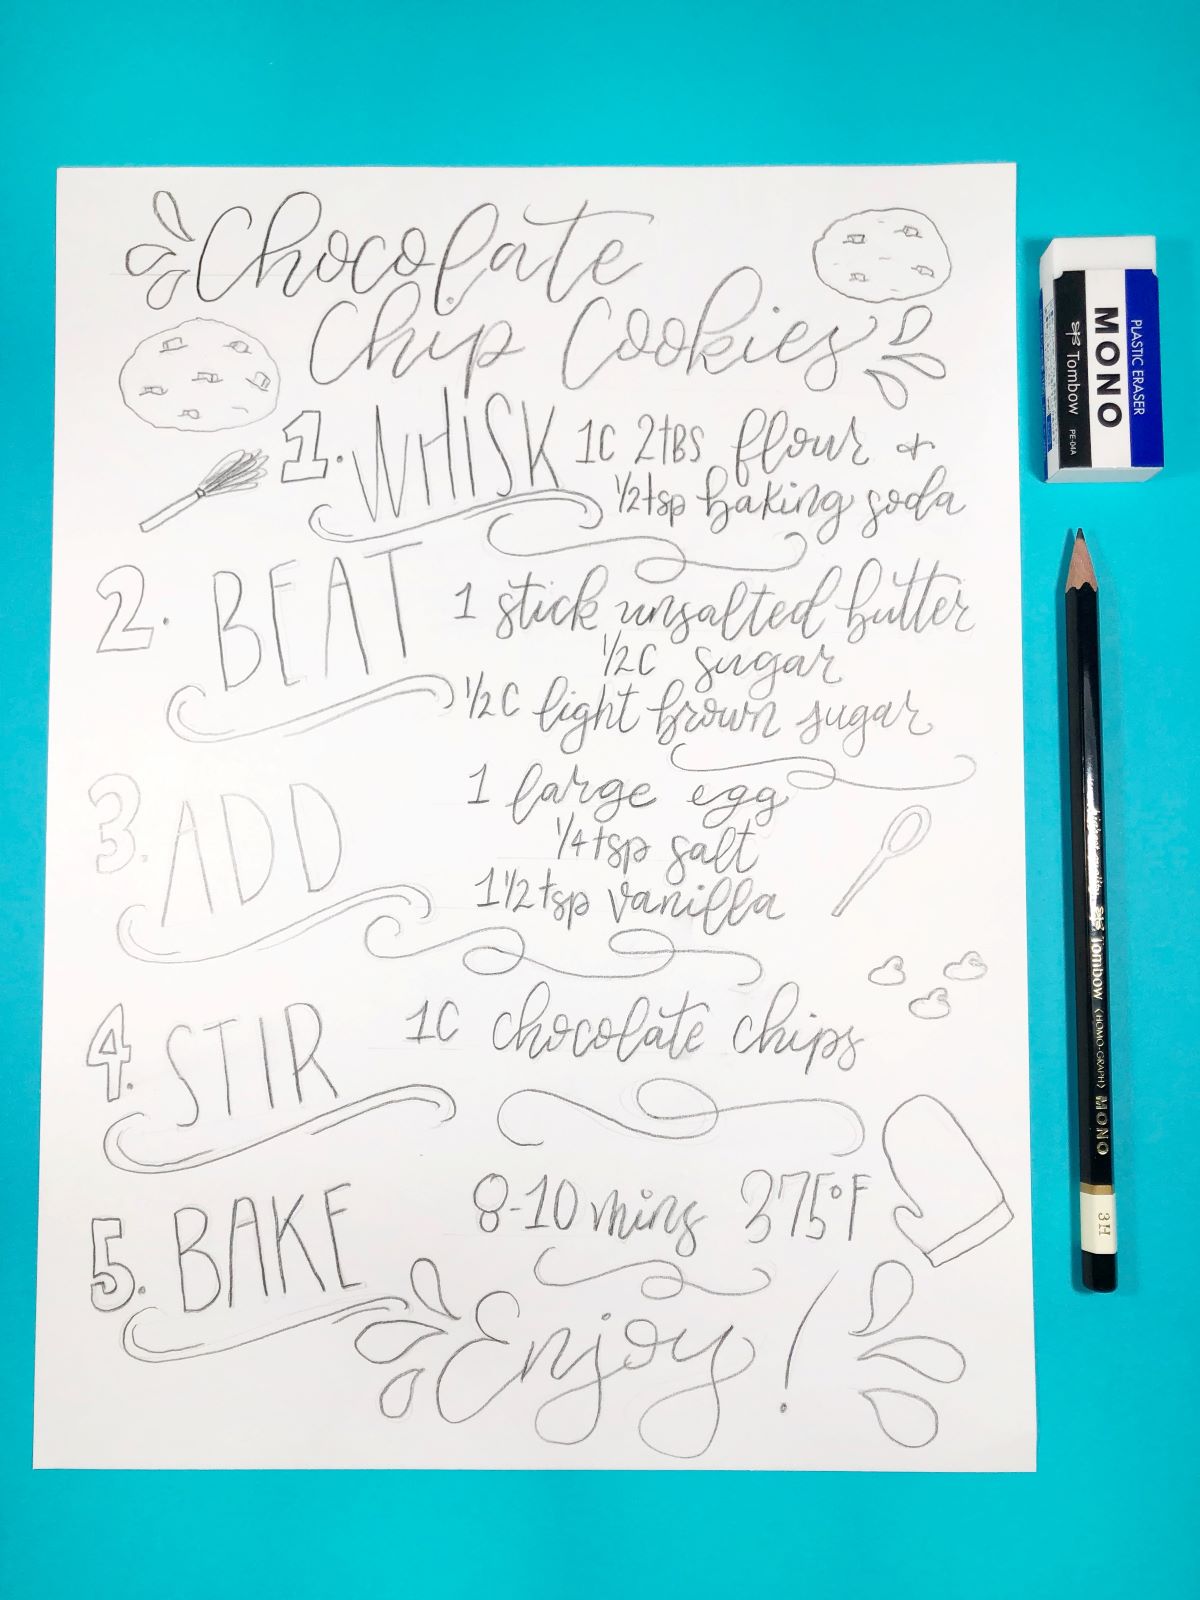 Chocolate
Chip Cookies
1. WHISK 1C 2TBS flour +
1/2tsp baking soda
2. BEAT 1 stick unsalted butter
1/2C sugar
1/2C light brown sugar
3. ADD 1 large egg
1/4tsp salt
1 1/2tsp vanilla
4. STIR 1C chocolate chips
5. BAKE 8-10 mins 375°F
Enjoy!
PLASTIC ERASER
MONO
Tombow PE-04A
Tombow <HOMO-GRAPH> MONO
3H